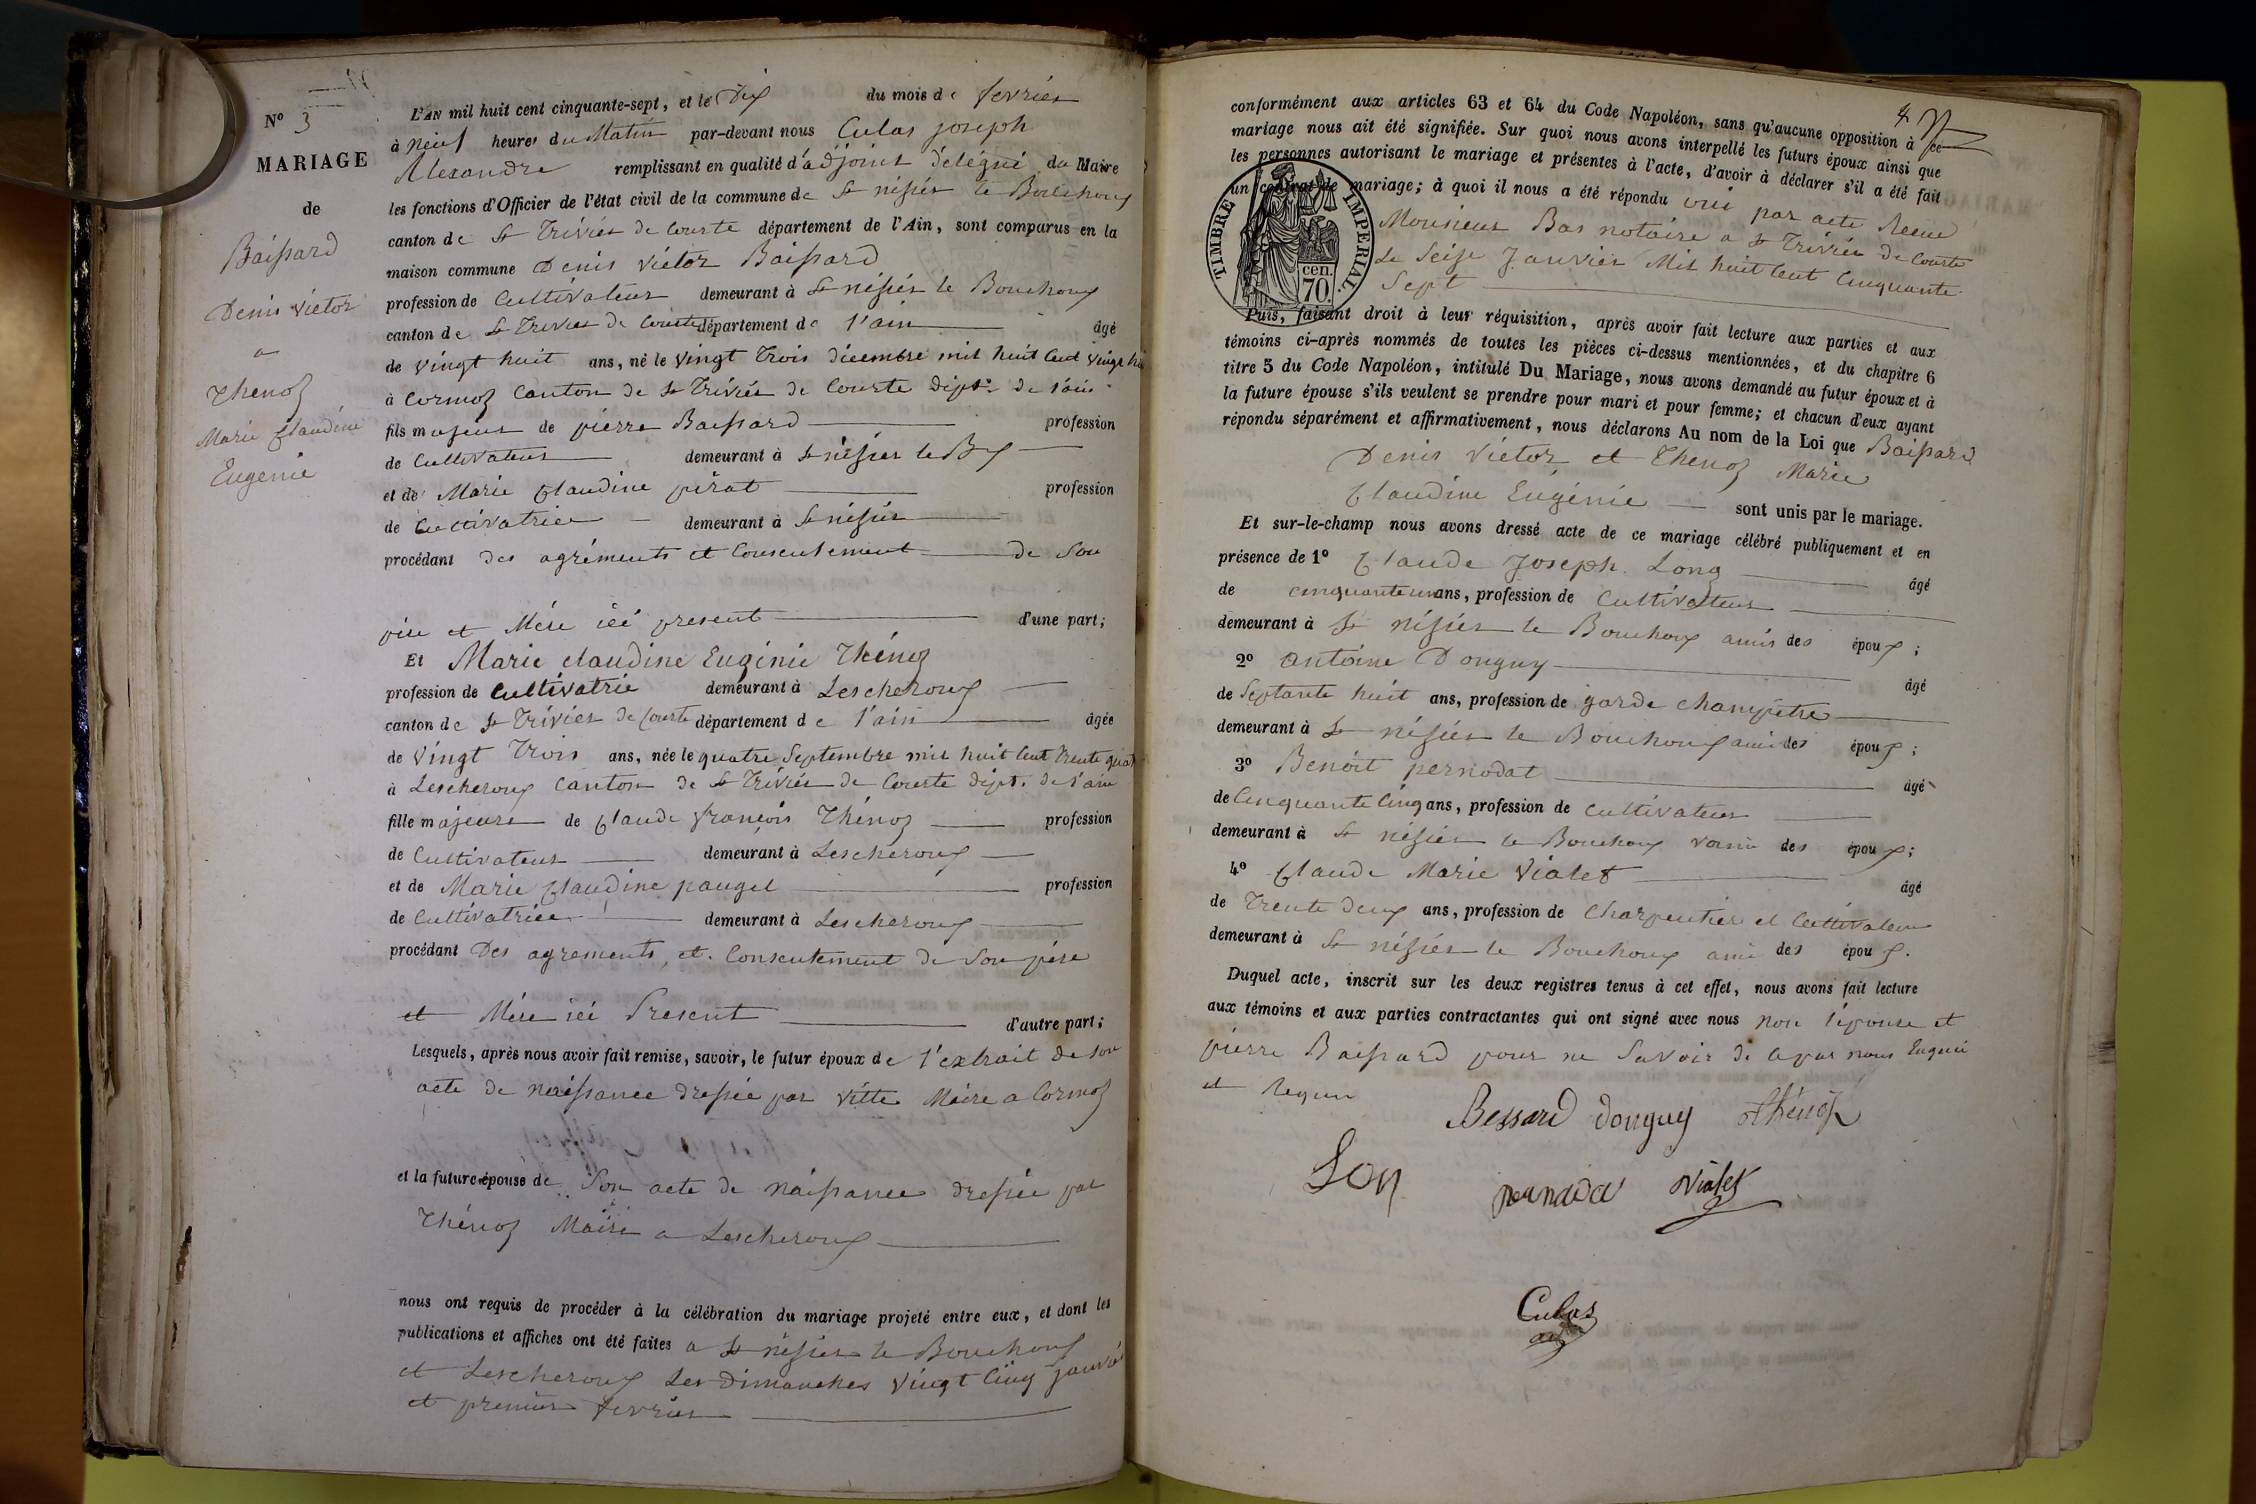 N° 3
MARIAGE
de
Baissard
Denis Victor
a
Thenoz
Marie Claudine
Eugenie
L'AN mil huit cent cinquante-sept, et le Dix du mois de fevrier
à neuf heures du Matin par-devant nous Culas joseph
Alexandre remplissant en qualité d'adjoint délégué du Maire
les fonctions d'Officier de l'état civil de la commune de St nisier le Bouchoux
canton de St Trivier de Courte département de l'Ain, sont comparus en la
maison commune Denis Victor Baissard
profession de Cultivateur demeurant à St nisier le Bouchoux
canton de St Trivier de Courte département de l'ain âgé
de vingt huit ans, né le vingt Trois décembre mil huit Cent vingt
à Cormoz Canton de St Trivier de Courte dépt. de l'ain
fils majeur de pierre Baissard profession
de Cultivateur demeurant à St nisier le Bx
et de Marie Claudine pirat profession
de Cultivatrice demeurant à St nisier
procédant des agréments et Consentement de Son
père et Mère ici present d'une part;
Et Marie claudine Eugénie Thénoz
profession de Cultivatrie demeurant à Lescheroux
canton de St Trivier de Courte département de l'ain âgée
de Vingt Trois ans, née le quatre Septembre mil huit Cent trente
à Lescheroux Canton de St Trivier de Courte dépt. de l'ain
fille majeure de Claude François Thénoz profession
de Cultivateur demeurant à Lescheroux
et de Marie Claudine pauget profession
de Cultivatrice demeurant à Lescheroux
procédant Des agrements, et Consentement de Son père
et Mère ici Present d'autre part;
Lesquels, après nous avoir fait remise, savoir, le futur époux de l'extrait de son
acte de naissance dressée par vitte Maire a Cormoz
et la future épouse de Son acte de naissance dressée par
Thénoz Maire a Lescheroux
nous ont requis de procéder à la célébration du mariage projeté entre eux, et dont les
publications et affiches ont été faites a St nisier le Bouchoux
et Lescheroux Les Dimanches vingt Cinq janvier
et premier fevrier
4
conformément aux articles 63 et 64 du Code Napoléon, sans qu'aucune opposition à ce
mariage nous ait été signifiée. Sur quoi nous avons interpellé les futurs époux ainsi que
les personnes autorisant le mariage et présentes à l'acte, d'avoir à déclarer s'il a été fait
un contrat de mariage; à quoi il nous a été répondu oui par acte Recue
Monsieur Bas notaire a St Trivier de Courte
Le Seize Janvier Mil huit Cent Cinquante
Sept
TIMBRE IMPERIAL.
cen.
70.
Puis, faisant droit à leur réquisition, après avoir fait lecture aux parties et aux
témoins ci-après nommés de toutes les pièces ci-dessus mentionnées, et du chapitre 6
titre 5 du Code Napoléon, intitulé Du Mariage, nous avons demandé au futur époux et à
la future épouse s'ils veulent se prendre pour mari et pour femme; et chacun d'eux ayant
répondu séparément et affirmativement, nous déclarons Au nom de la Loi que Baissard
Denis Victor et Thenoz Marie
Claudine Eugénie sont unis par le mariage.
Et sur-le-champ nous avons dressé acte de ce mariage célébré publiquement et en
présence de 1° Claude Joseph Long âgé
de cinquante un ans, profession de Cultivateur
demeurant à St nisier le Bouchoux amis des époux;
2° antoine Donguy âgé
de Septante huit ans, profession de garde champêtre
demeurant à St nisier le Bouchoux ami des époux;
3° Benoit pernodat âgé
de Cinquante Cinq ans, profession de Cultivateur
demeurant à St nisier le Bouchoux voisin des époux;
4° Claude Marie Vialet âgé
de Trente deux ans, profession de Charpentier et Cultivateur
demeurant à St nisier le Bouchoux ami des époux.
Duquel acte, inscrit sur les deux registres tenus à cet effet, nous avons fait lecture
aux témoins et aux parties contractantes qui ont signé avec nous non l'épouse et
pierre Baissard pour ne Savoir de a par nous Enquis
et Requis
Bessard donguy thénoz
Lon pernada vialet
Culas